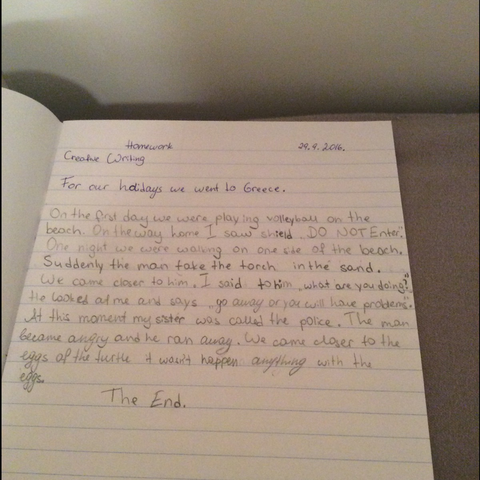 Homework 29.9.2016.
Creative Writing
For our holidays we went to Greece.
On the first day we were playing volleyball on the
beach. On the way home I saw shield „DO NOT Enter."
One night we were walking on one side of the beach.
Suddenly the man take the torch in the sand.
We came closer to him. I said to him „what are you doing?"
He looked at me and says „go away or you will have problems".
At this moment my sister was called the police. The man
became angry and he ran away. We came closer to the
eggs of the turtle it wasn't happen anything with the
eggs.
The End.